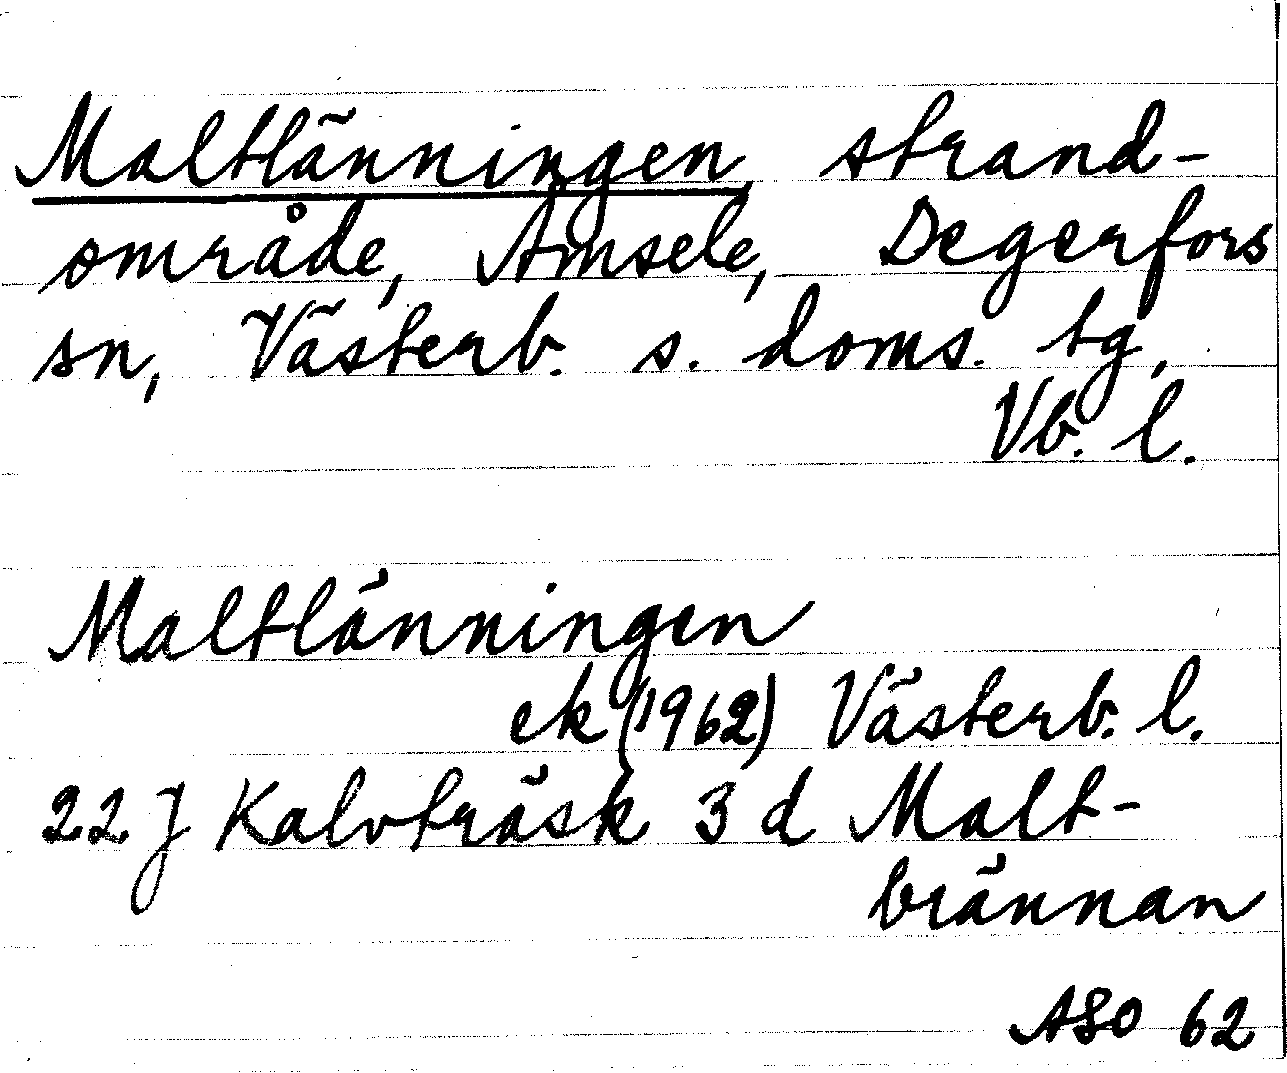 Maltlänningen, strand-
område, Åmsele, Degerfors
sn, Västerb. s. doms. tg,
Vb. l.
Maltlänningen
ek (1962) Västerb. l.
22 J Kalvträsk 3 d Malt-
brännan
ASO 62